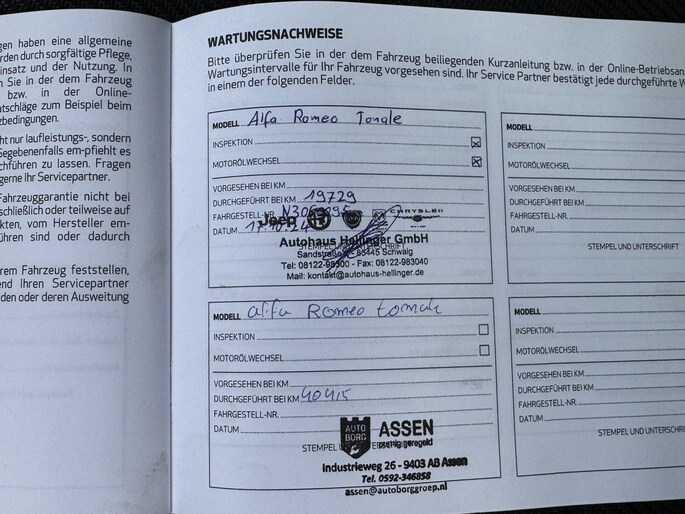 gen haben eine allgemeine
rden durch sorgfältige Pflege,
insatz und der Nutzung. In
n Sie in der dem Fahrzeug
bzw. in der Online-
atschläge zum Beispiel beim
zbedingungen.
ht nur laufleistungs-, sondern
Gegebenenfalls em-pfiehlt es
chführen zu lassen. Fragen
gerne Ihr Servicepartner.
Fahrzeuggarantie nicht bei
schließlich oder teilweise auf
kten, vom Hersteller em-
ühren sind oder dadurch
rem Fahrzeug feststellen,
end Ihren Servicepartner
den oder deren Ausweitung
WARTUNGSNACHWEISE
Bitte überprüfen Sie in der dem Fahrzeug beiliegenden Kurzanleitung bzw. in der Online-Betriebsan
Wartungsintervalle für Ihr Fahrzeug vorgesehen sind. Ihr Service Partner bestätigt jede durchgeführte W
in einem der folgenden Felder.
MODELL Alfa Romeo Tonale
INSPEKTION
MOTORÖLWECHSEL
VORGESEHEN BEI KM
DURCHGEFÜHRT BEI KM 19729
FAHRGESTELL-NR.
DATUM 17.10.24
Jeep CHRYSLER
Autohaus Hellinger GmbH
STEMPEL UND UNTERSCHRIFT
85445 Schwaig
Tel: 08122-99500 - Fax: 08122-983040
Mail: kontakt@autohaus-hellinger.de
MODELL alfa Romeo tonale
INSPEKTION
MOTORÖLWECHSEL
VORGESEHEN BEI KM
DURCHGEFÜHRT BEI KM 40415
FAHRGESTELL-NR.
DATUM
AUTO BORG ASSEN
STEMPEL UND
Industrieweg 26 - 9403 AB Assen
Tel. 0592-346858
assen@autoborggroep.nl
MODELL
INSPEKTION
MOTORÖLWECHSEL
VORGESEHEN BEI KM
DURCHGEFÜHRT BEI KM
FAHRGESTELL-NR.
DATUM
STEMPEL UND UNTERSCHRIFT
MODELL
INSPEKTION
MOTORÖLWECHSEL
VORGESEHEN BEI KM
DURCHGEFÜHRT BEI KM
FAHRGESTELL-NR.
DATUM
STEMPEL UND UNTERSCHRI